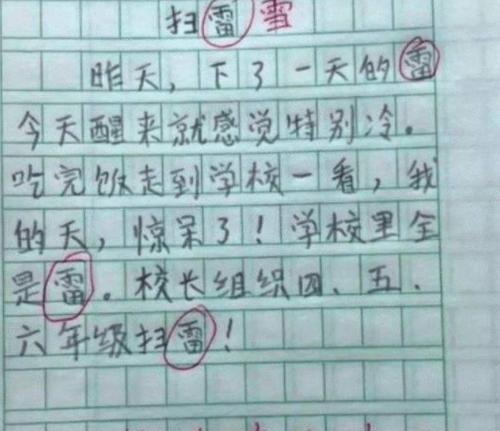 扫雷 雪
昨天，下了一天的雷
今天醒来就感觉特别冷。
吃完饭走到学校一看，我
的天，惊呆了！学校里全
是雷。校长组织四、五、
六年级扫雷！